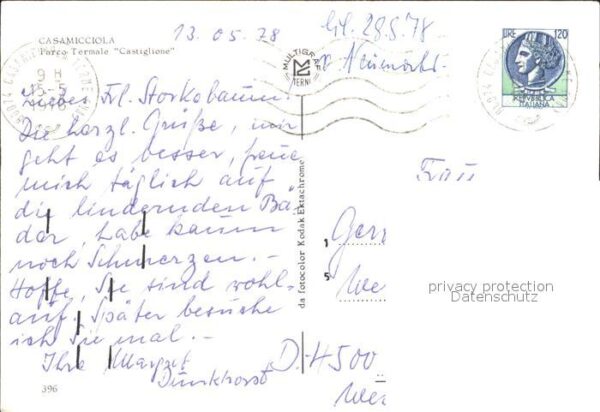 13.05.78
28.5.78
CASAMICCIOLA
Parco Termale "Castiglione"
MULTIGRAF
TERNI
LIRE 120
REPVBBLICA
ITALIANA
9 H
15-5
Liebes Frl. Storkobaum.
Die herzl. Grüße, mir
geht es besser, freue
mich täglich auf
die lindernden Bä-
der, habe kaum
noch Schmerzen.-
Hoffe, Sie sind wohl-
auf. Später besuche
ich Sie mal.-
Ihre Margret
Dunkhorst
Frau
Gerr
We
D-4500
Wer
da fotocolor Kodak Ektachrome
privacy protection
Datenschutz
396